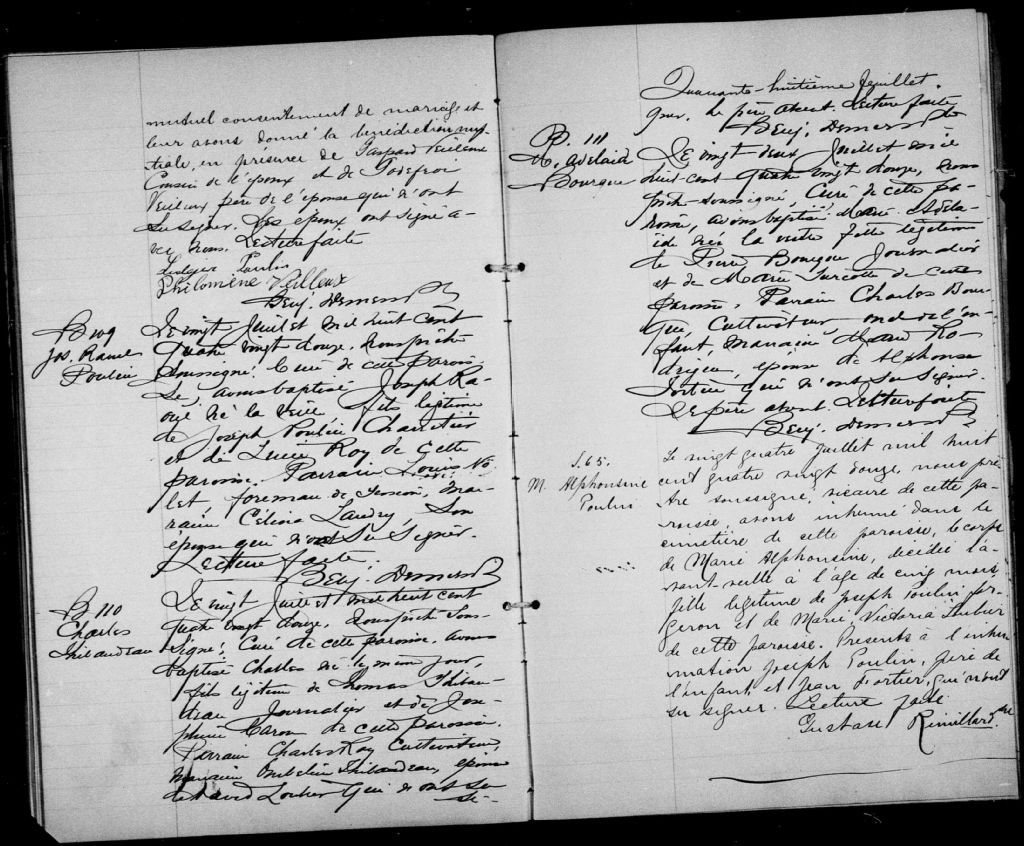 mutuel consentement de mariage et
leur avons donné la bénédiction nup
tiale, en présence de Gaspard Veilleux
Cousin de l'époux et de Godefroi
Veilleux père de l'épouse qui n'ont
su signer. Les epoux ont signé a-
vec nous. Lecture faite
Ludger Poulin
Philomène Veilleux
Benj. Demers Ptre
B 109
Jos. Raoul
Poulin
Le vingt Juillet mil huit cent
quatre vingt douze, nous prêtre
soussigné, Curé de cette parois-
se, avons baptisé Joseph Ra-
oul né la veille, fils légitime
de Joseph Poulin Charretier
et de Lucie Roy de cette
paroisse. Parrain Louis No
let, foreman de section, Mar-
raine Célina Landry son
épouse qui n'ont su signer.
Lecture faite.
Benj. Demers Ptre
B 110
Charles
Thibaudeau
Le vingt Juillet mil huit cent
quatre vingt douze, nous prêtre sous-
signé, Curé de cette paroisse, avons
baptisé Charles né le même jour,
fils légitime de Thomas Thibau-
deau Journalier et de Jose-
phine Caron de cette paroisse.
Parrain Charles Roy Cultivateur,
Marraine Thibaudeau, épouse
de David qui n'ont su
si-
Quarante-huitième feuillet.
gner. Le père absent. Lecture faite
Benj. Demers Ptre
B. 111
M. Adelaid
Bourque
Le vingt deux Juillet mil
huit cent quatre vingt douze, nous
prêtre soussigné, Curé de cette pa-
roisse, avons baptisé Marie Adéla-
ide née la veille fille légitime
de Pierre Bourque Journalier
et de Marie Turcotte de cette
paroisse. Parrain Charles Bour-
que, Cultivateur oncle de l'en-
fant, Marraine Marie Ro
drigue, épouse de Alphonse
Fortier qui n'ont su signer.
Le père absent. Lecture faite
Benj. Demers Ptre
S. 65.
M. Alphonsine
Poulin
Le vingt quatre Juillet mil huit
cent quatre vingt douze, nous prê-
tre soussigné, vicaire de cette pa-
roisse, avons inhumé dans le
cimetière de cette paroisse, le corps
de Marie Alphonsine, décédée l'a-
vant-veille à l'âge de cinq mois
fille légitime de Joseph Poulin for-
geron et de Marie Victoria
de cette paroisse. Présents à l'inhu
mation Joseph Poulin, père de
l'enfant et Jean Fortier, qui n'ont
su signer. Lecture faite.
Gustave Rémillard Ptre